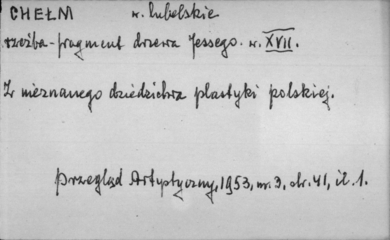 CHEŁM w. lubelskie
rzeźba - fragment drzewa Jessego. w. XVII.
Z nieznanego dziedzictwa plastyki polskiej.
Przegląd Artystyczny, 1953, nr. 3, str. 41, il. 1.